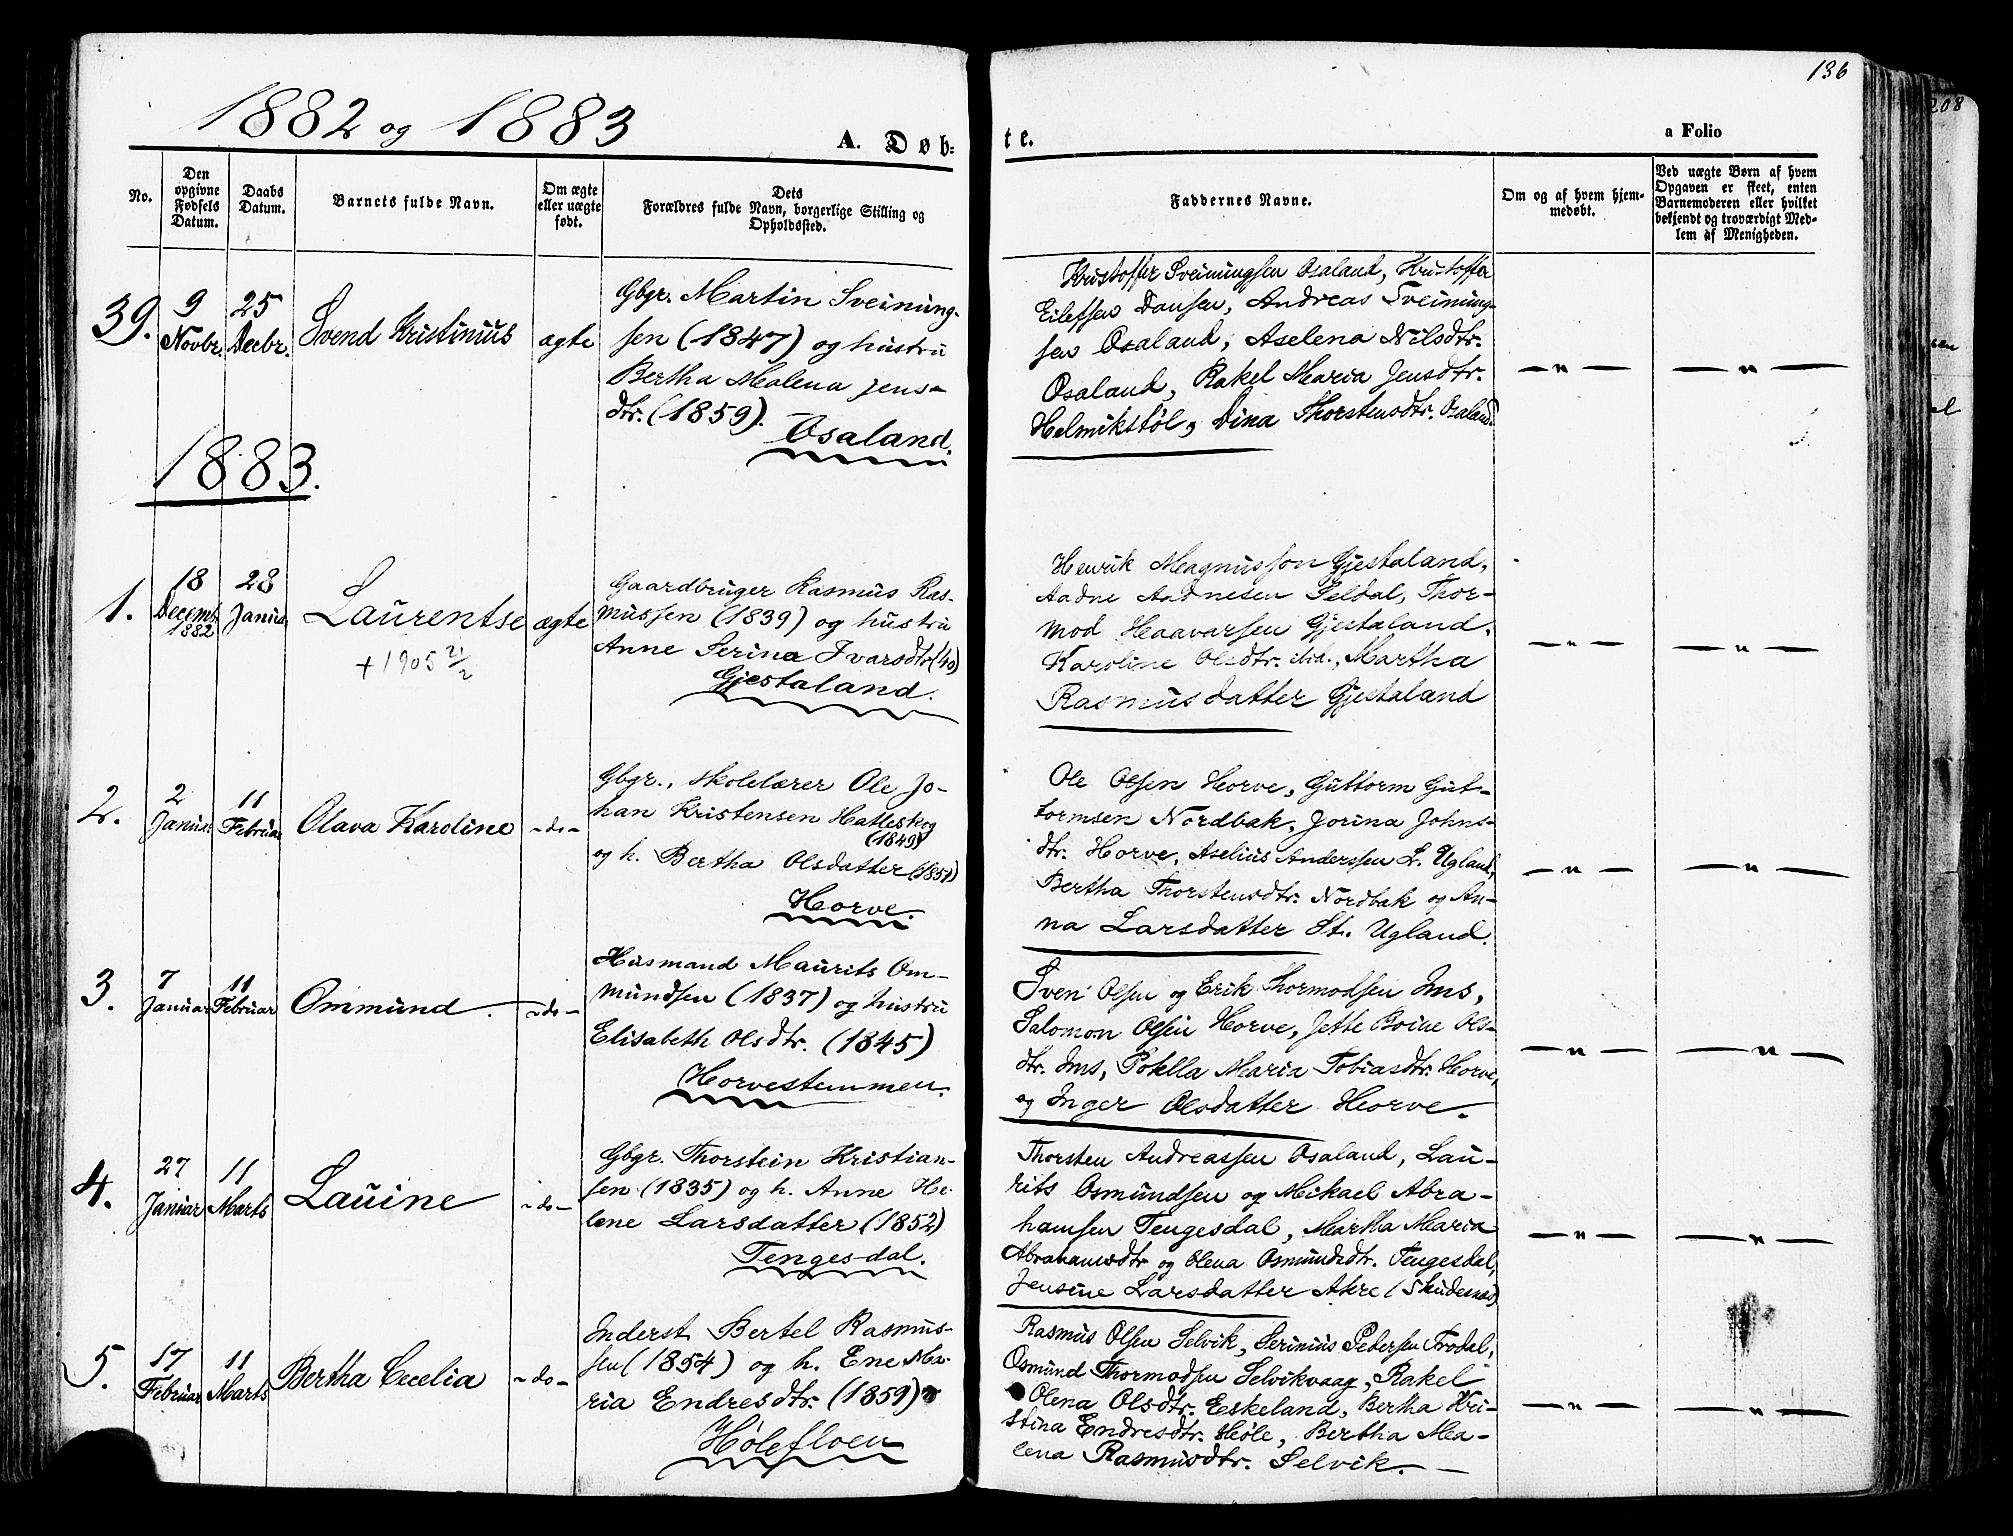 136
208
1882 og 1883
A. Døb=
te.
a Folio
No.
Den opgivne Fødsels Datum.
Daabs Datum.
Barnets fulde Navn.
Om ægte eller uægte født.
Dets Forældres fulde Navn, borgerlige Stilling og Opholdssted.
Faddernes Navne.
Om og af hvem hjemmedøbt.
Ved uægte Børn af hvem Opgaven er skeet, enten Barnemoderen eller hvilket bekjendt og troværdigt Medlem af Menigheden.
39.
9 Novbr.
25 Decbr.
Svend Kristinius
ægte
Gbgr. Martin Sveinung-
sen (1847) og hustru
Bertha Malena Jens-
dtr. (1859).
Osaland.
Kristoffer Sveinungsen Osaland, Kristoffer
Eilefsen Dansen, Andreas Sveinung-
sen Osaland, Aselena Nilsdtr.
Osaland, Rakel Maria Jensdtr.
Helmikstøl, Dina Thorstensdtr. Osaland.
— " —
— " —
1883.
1.
18 Decemb. 1882
28 Januar
Laurentse
+ 1905 21/2
ægte
Gaardbruger Rasmus Ras-
mussen (1839) og hustru
Anne Serina Ivarsdtr (40)
Gjestaland.
Henrik Magnusson Gjestaland,
Aadne Aadnesen Seldal, Thor-
mod Haavarsen Gjestaland,
Karoline Olsdtr. ibid., Martha
Rasmusdatter Gjestaland
— " —
— " —
2.
2 Januar
11 Februar
Olava Karoline
- do -
Gbgr., Skolelærer Ole Jo-
han Kristensen Hatleskog
(1849)
og h. Bertha Olsdatter (1851)
Horve.
Ole Olsen Horve, Guttorm Gut-
tormsen Nordbak, Jorina Johns-
dtr. Horve, Aselius Anderssen L. Ugland,
Bertha Thorstensdtr. Nordbak og An-
na Larsdatter St. Ugland.
— " —
— " —
3.
7 Januar
11 Februar
Ommund
- do -
Husmand Maurits Om-
mundsen (1837) og hustru
Elisabeth Olsdtr. (1845)
Horvestemmen.
Sven Olsen og Erik Thormodsen Ims,
Salomon Olsen Horve, Jette Boine Ols-
dtr. Ims, Maria Tobiasdtr. Horve,
og Inger Olsdatter Horve.
— " —
— " —
4.
27 Januar
11 Marts
Lauine
- do -
Gbgr. Thorstein Kristian-
sen (1835) og h. Anne He-
lene Larsdatter (1852)
Tengesdal.
Thorsten Andreassen Osaland, Lau-
rits Osmundsen og Mikael Abra-
hamsen Tengesdal, Martha Maria
Abrahamsdtr og Olena Osmundsdtr. Tengesdal,
Jensine Larsdatter Akre (Skudesnæs)
— " —
— " —
5.
17 Februar
11 Marts
Bertha Cecelia
- do -
Inderst Bertel Rasmus-
sen (1854) og h. Ene Ma-
ria Endresdtr. (1859)
Hølefloen
Rasmus Olsen Selvik, Serinius Pedersen Frødal,
Osmund Thormodsen Selvikvaag, Rakel
Olena Olsdtr. Eskeland, Bertha Kri-
stina Endresdtr. Høle, Bertha Ma-
lena Rasmusdtr. Selvik.
— " —
— " —